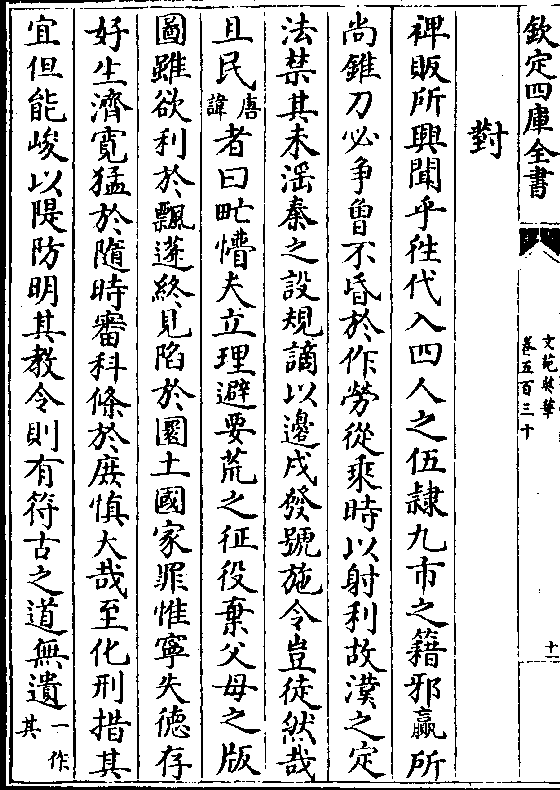 欽定四庫全書
文苑英華
卷五百三十
十一
對
裨販所興聞乎徃代入四人之伍隷九市之籍邪贏所
尚錐刀必争曾不昏於作勞從乘時以射利故漢之定
法禁其未滛秦之設規謫以邊戍發號施令豈徒然哉
且民唐諱者曰甿懵夫立理避要荒之征役棄父母之版
圖雖欲利於飄蓬終見陷於圜土國家罪惟寧失德存
好生濟寛猛於隨時審科條於庶慎大哉至化刑措其
宜但能峻以隄防明其教令則有符古之道無遺一作其